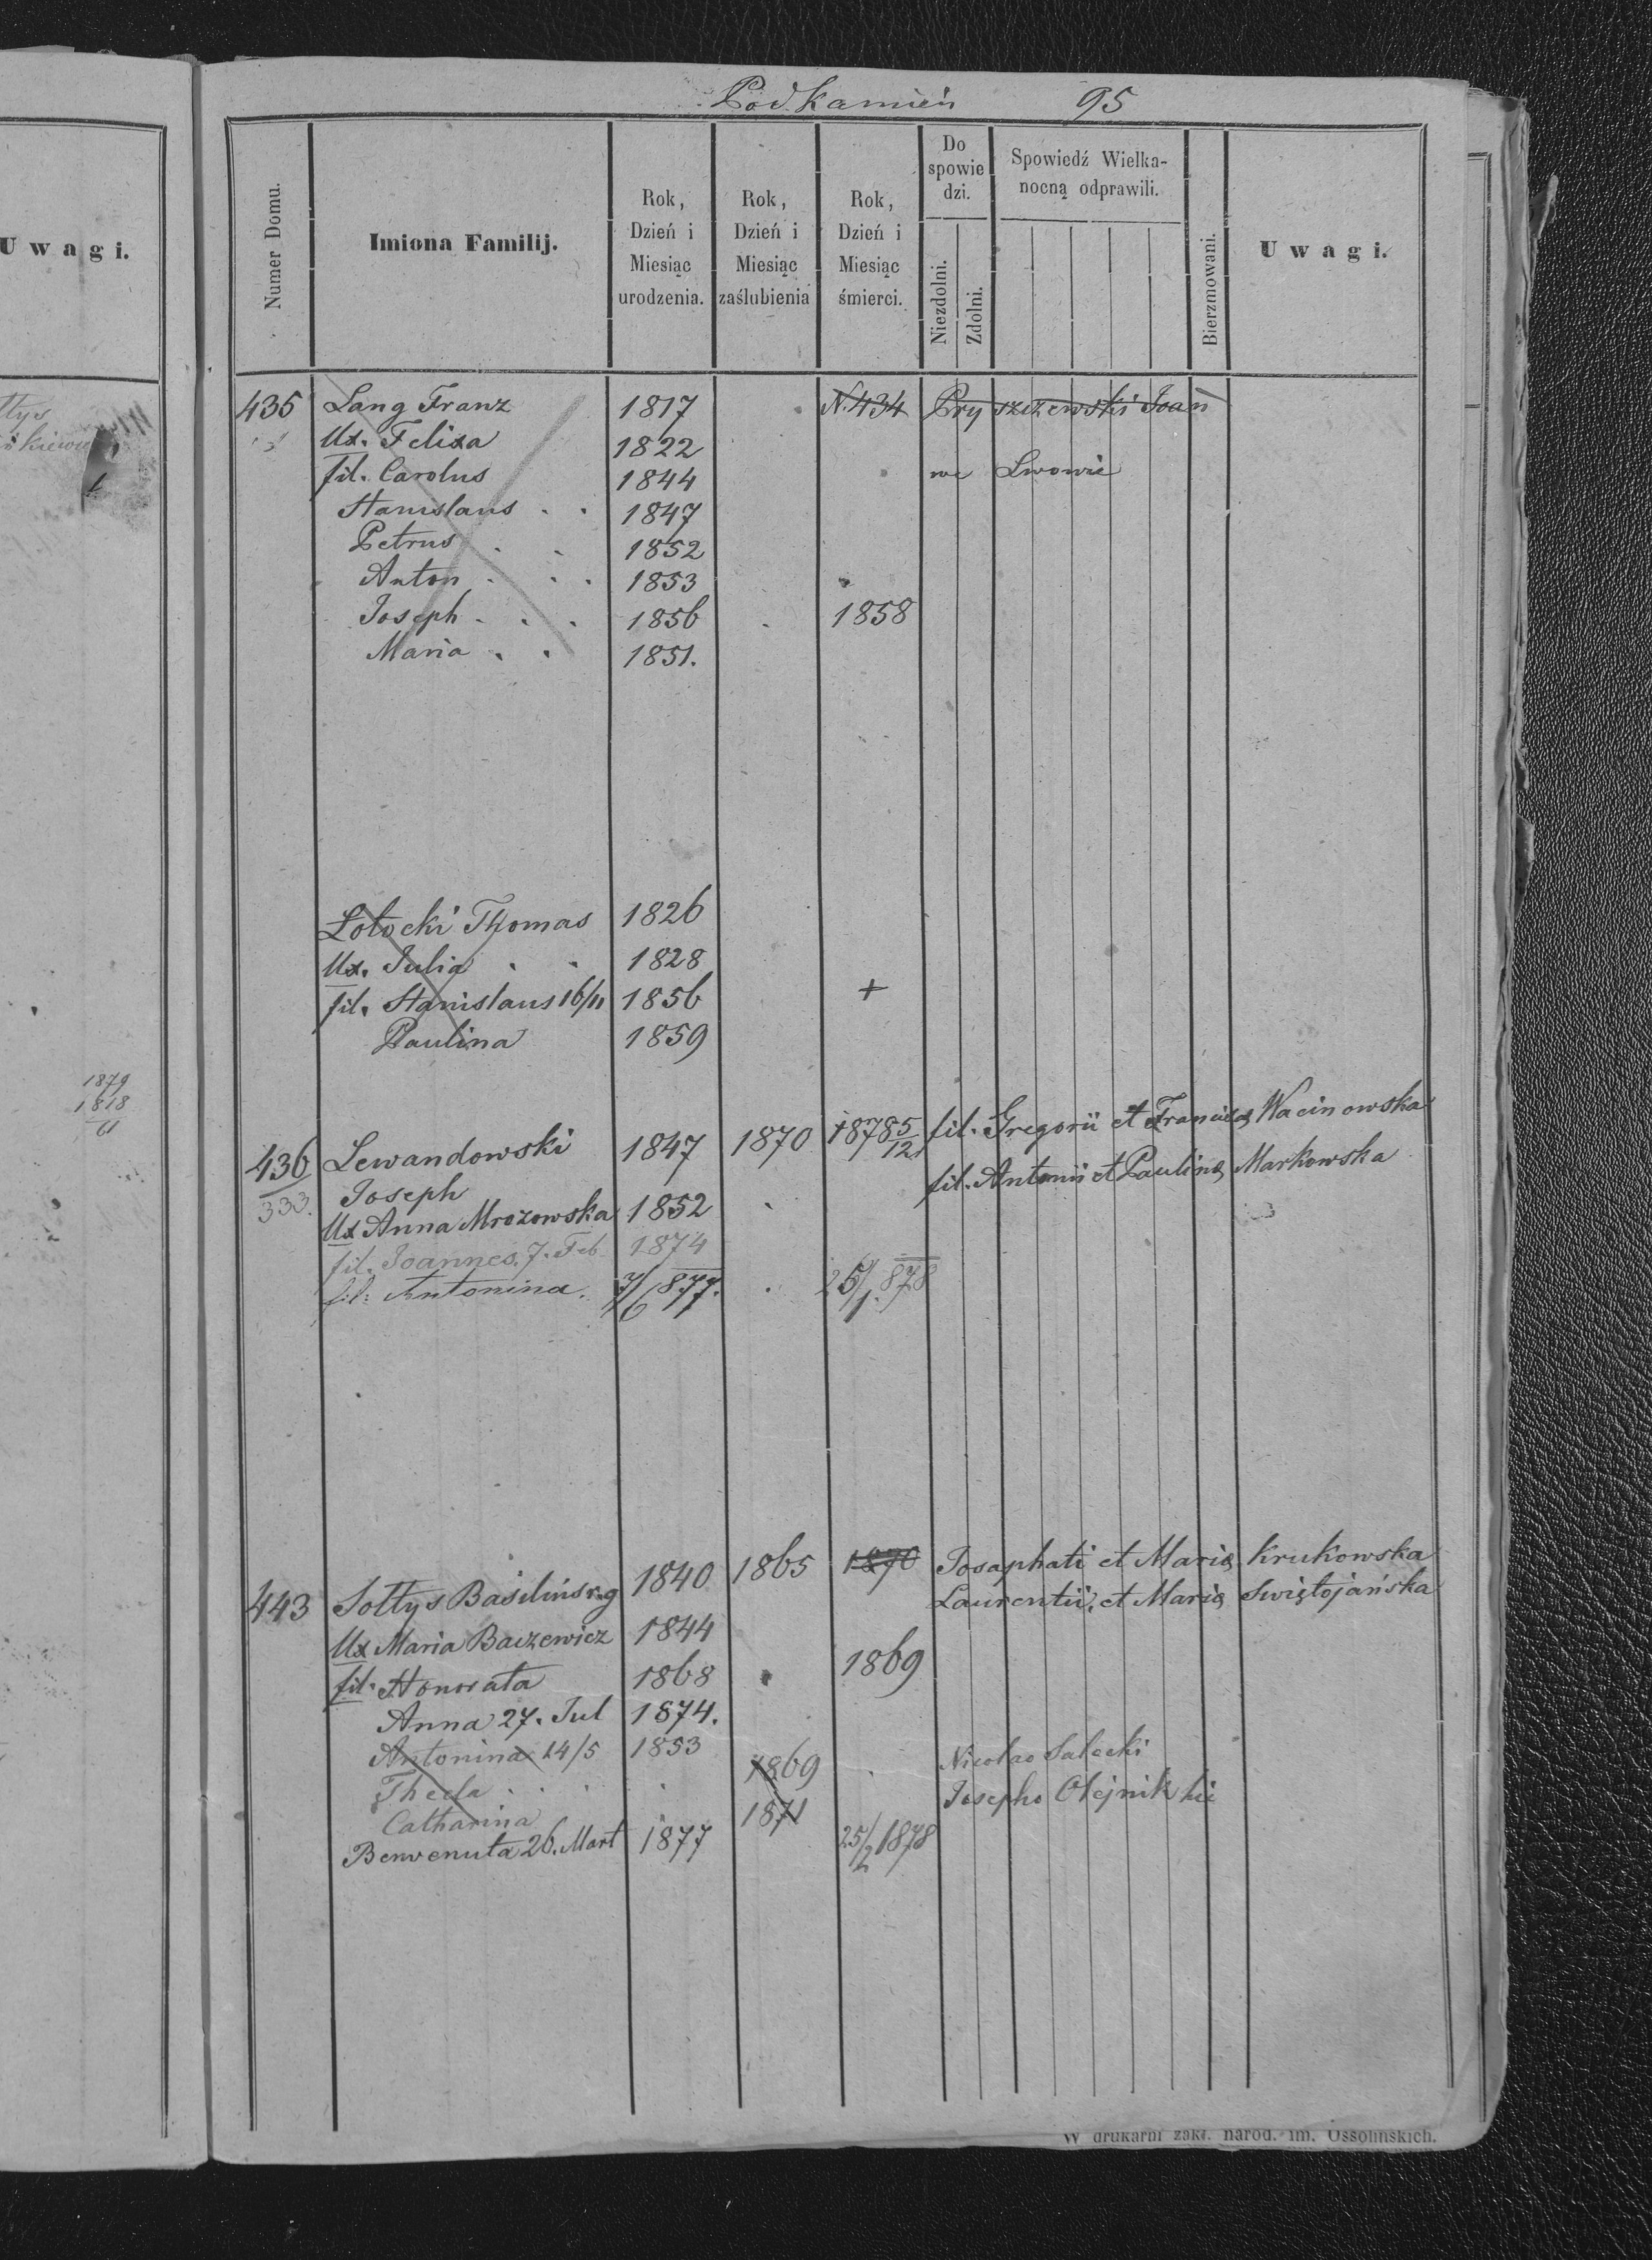 Podkamień 95
Uwagi.
Numer Domu.
Imiona Familij.
Rok, Dzień i Miesiąc urodzenia.
Rok, Dzień i Miesiąc zaślubienia
Rok, Dzień i Miesiąc śmierci.
Do spowiedzi.
Niezdolni.
Zdolni.
Spowiedź Wielka-
nocną odprawili.
Bierzmowani.
Uwagi.
435 Lang Franz 1817 N. 434 Pryszczewski Joan
Ux. Felixa 1822
fil. Carolus 1844 we Lwowie
Stanislaus 1847
Petrus 1852
Anton 1853
Joseph 1856 1858
Maria 1851.
Lotocki Thomas 1826
Ux. Julia 1828
fil. Stanislaus 16/11 1856 +
Paulina 1859
1879
1818
61
436 Lewandowski 1847 1870 1878 5/12 fil. Gregorii et Francisca Wacinowska
333. Joseph fil. Antonii et Paulina Markowska
Ux Anna Mrozowska 1852
fil. Joannes. 7. Feb. 1874
fil: Antonina. 7/6 877. 25/1. 878
443 Sołtys Basilius r.g 1840 1865 1870 Josaphati et Maria Krukowska
Ux Maria Baczewicz 1844 Laurentii, et Maria Swiętojańska
fil. Honorata 1868 1869
Anna 27. Jul 1874.
Antonina 14/5 1853 Nicolao Salecki
Thecla 1869 Josepho Olejnik
Catharina 1871
Benvenuta 26. Mart 1877 25/2 1878
W drukarni zakł. narod. im. Ossolińskich.